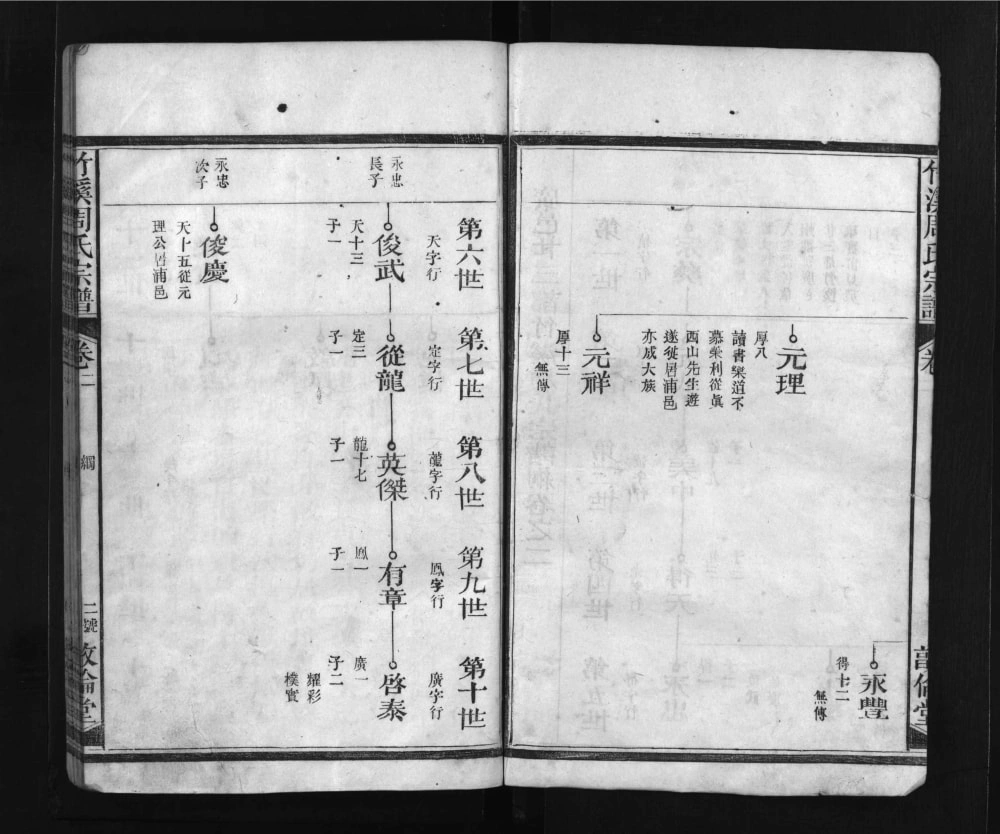 永豐
得十二
無傳
元理
厚八
讀書樂道不
慕榮利從眞
西山先生遊
遂徙居浦邑
亦成大族
元祥
厚十三
無傳
第六世
第七世
第八世
第九世
第十世
天字行
定字行
龍字行
鳳字行
廣字行
永忠
長子
俊武
天十三
子一
從龍
定三
子一
英傑
龍十七
子一
有章
鳳一
子一
啓泰
廣一
子二
耀彩
樸實
永忠
次子
俊慶
天十五從元
理公居浦邑
竹溪周氏宗譜
卷二
綱
二號
敦倫堂